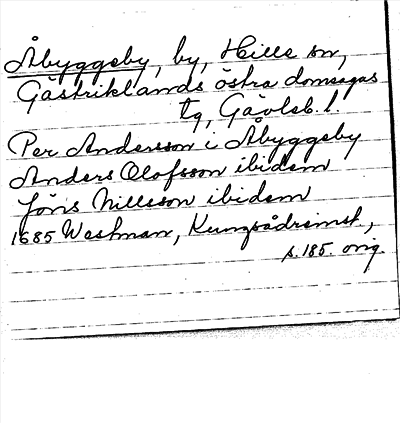 Åbyggeby, by, Hille sn,
Gästriklands östra domsagas
tg, Gävleb. l.
Per Andersson i Åbyggeby
Anders Olofsson ibidem
Jöns Nillsson ibidem
1685 Westman, Kungsådremsk.,
s. 185. orig.